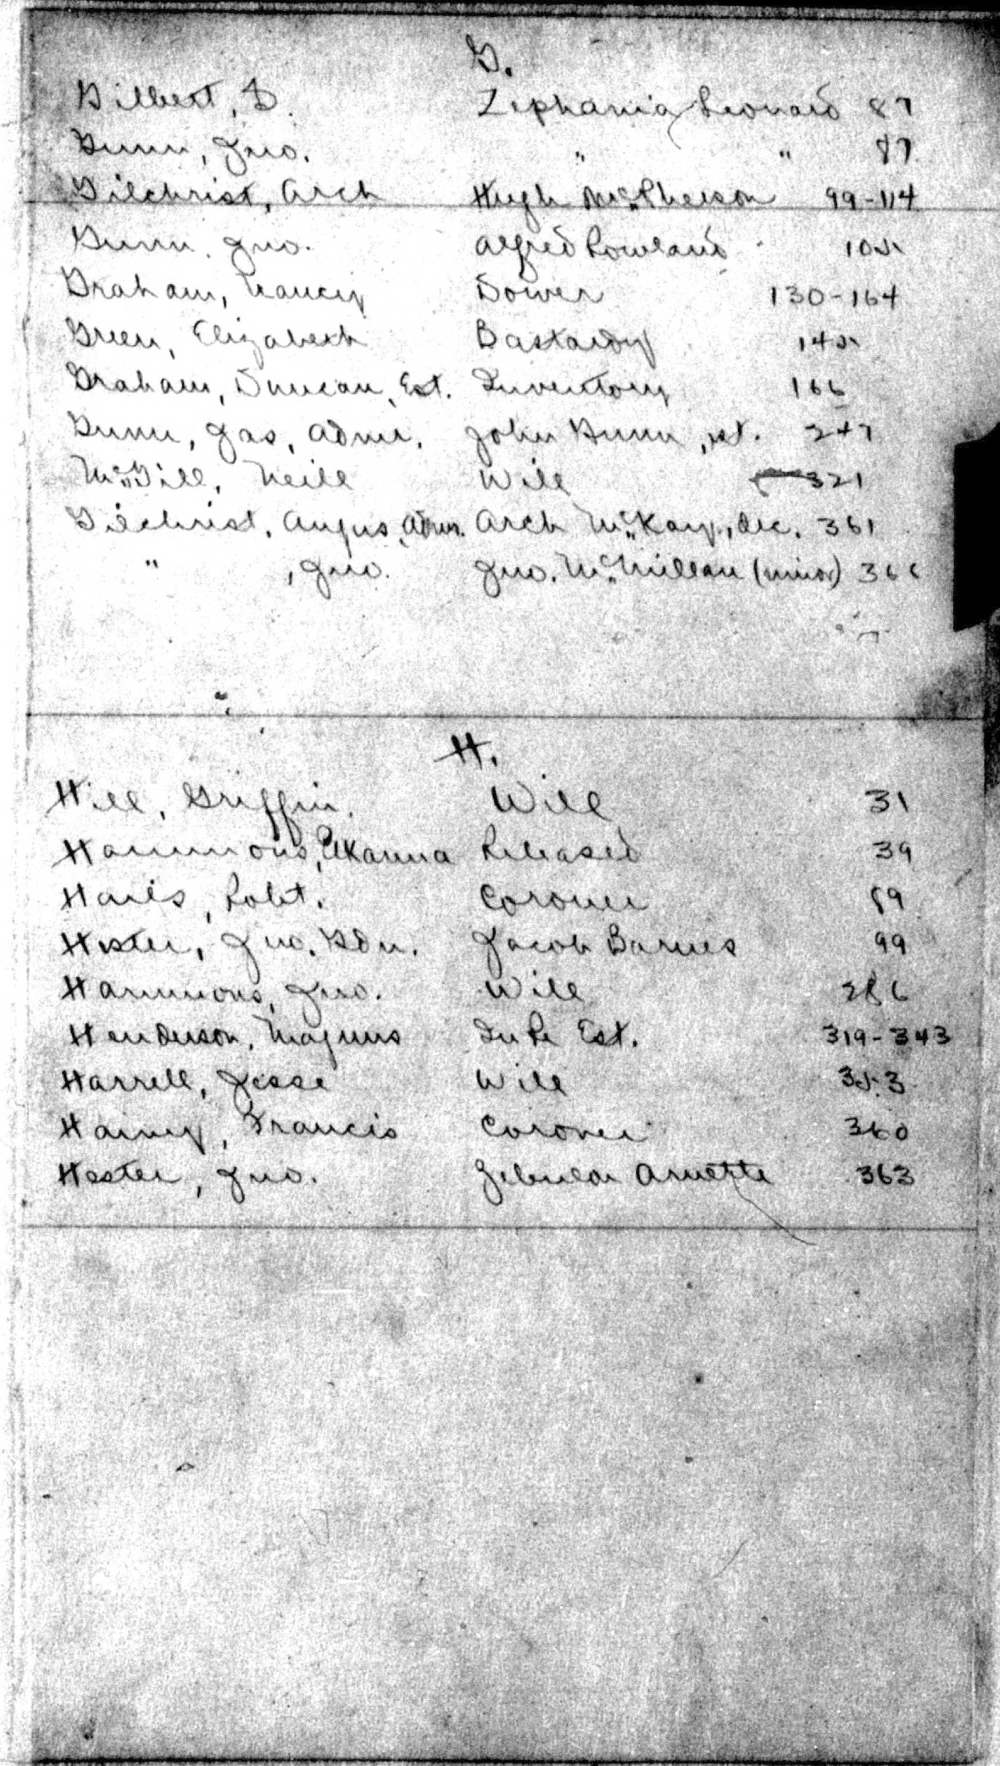 G.
Gilbert, D. Zephania Leonard 87
Gunn, Jno. " " 87
Gilchrist, Arch Hugh McPherson 99-114
Gunn, Jno. Alfred Rowland 105
Graham, Nancy Dower 130-164
Green, Elizabeth Bastardy 145
Graham, Duncan, Est. Inventory 166
Gunn, Jas, Admr. John Gunn, est. 247
McGill, Neill Will 321
Gilchrist, Angus, Adm. Arch McKay, dec. 361
" , Jno. Jno. McMillan (minor) 366
H.
Hill, Griffin. Will 31
Hammons, Released 39
Hails, Robt. Coroner 89
Hester, Jno. Gdn. Jacob Barnes 99
Hammons, Jno. Will 286
Henderson, Magnus In Re Est. 319-343
Harrell, Jesse Will 353
Hainy, Francis Coroner 360
Hester, Jno. Zebulon Arnette 363